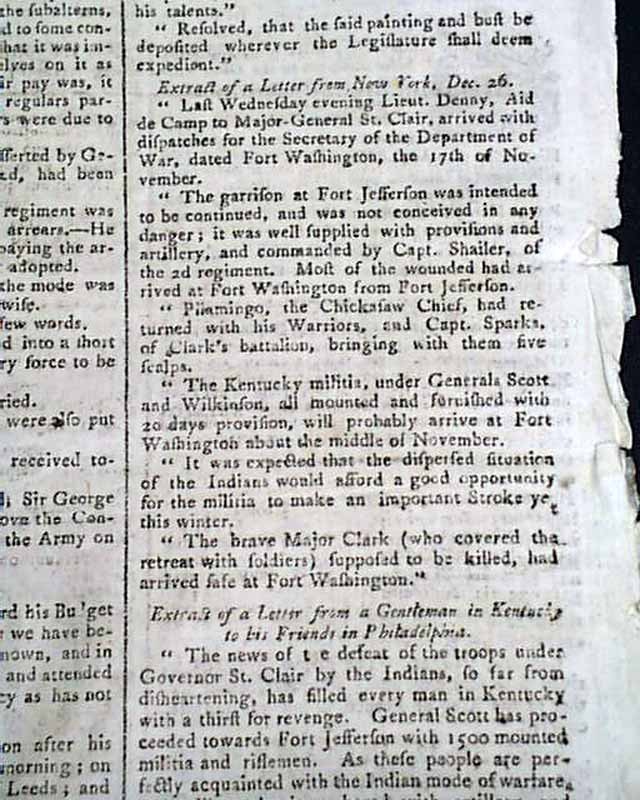 the subalterns,
d to some con-
hat it was im-
elves on it as
ir pay was, it
regulars par-
rs were due to
sserted by Ge-
ed, had been
regiment was
arrears.—He
paying the ar-
adopted.
the mode was
wise.
few words.
d into a short
ry force to be
ried.
were also put
received to-
Sir George
ove the Con-
the Army on
rd his Budget
we have be-
nown, and in
and attended
cy as has not
on after his
morning; on
Leeds; and
his talents."
"Resolved, that the said painting and bust be
deposited wherever the Legislature shall deem
expedient."
Extract of a Letter from New York, Dec. 26.
"Last Wednesday evening Lieut. Denny, Aid
de Camp to Major-General St. Clair, arrived with
dispatches for the Secretary of the Department of
War, dated Fort Washington, the 17th of No-
vember.
"The garrison at Fort Jefferson was intended
to be continued, and was not conceived in any
danger; it was well supplied with provisions and
artillery, and commanded by Capt. Shailer, of
the 2d regiment. Most of the wounded had ar-
rived at Fort Washington from Fort Jefferson.
"Piiamingo, the Chickasaw Chief, had re-
turned with his Warriors, and Capt. Sparks,
of Clark's battalion, bringing with them five
scalps.
"The Kentucky militia, under Generals Scott
and Wilkinson, all mounted and furnished with
20 days provision, will probably arrive at Fort
Washington about the middle of November.
"It was expected that the dispersed situation
of the Indians would afford a good opportunity
for the militia to make an important Stroke yet
this winter.
"The brave Major Clark (who covered the
retreat with soldiers) supposed to be killed, had
arrived safe at Fort Washington."
Extract of a Letter from a Gentleman in Kentucky
to his Friends in Philadelphia.
"The news of t e defeat of the troops under
Governor St. Clair by the Indians, so far from
disheartening, has filled every man in Kentucky
with a thirst for revenge. General Scott has pro-
ceeded towards Fort Jefferson with 1500 mounted
militia and riflemen. As these people are per-
fectly acquainted with the Indian mode of warfare,